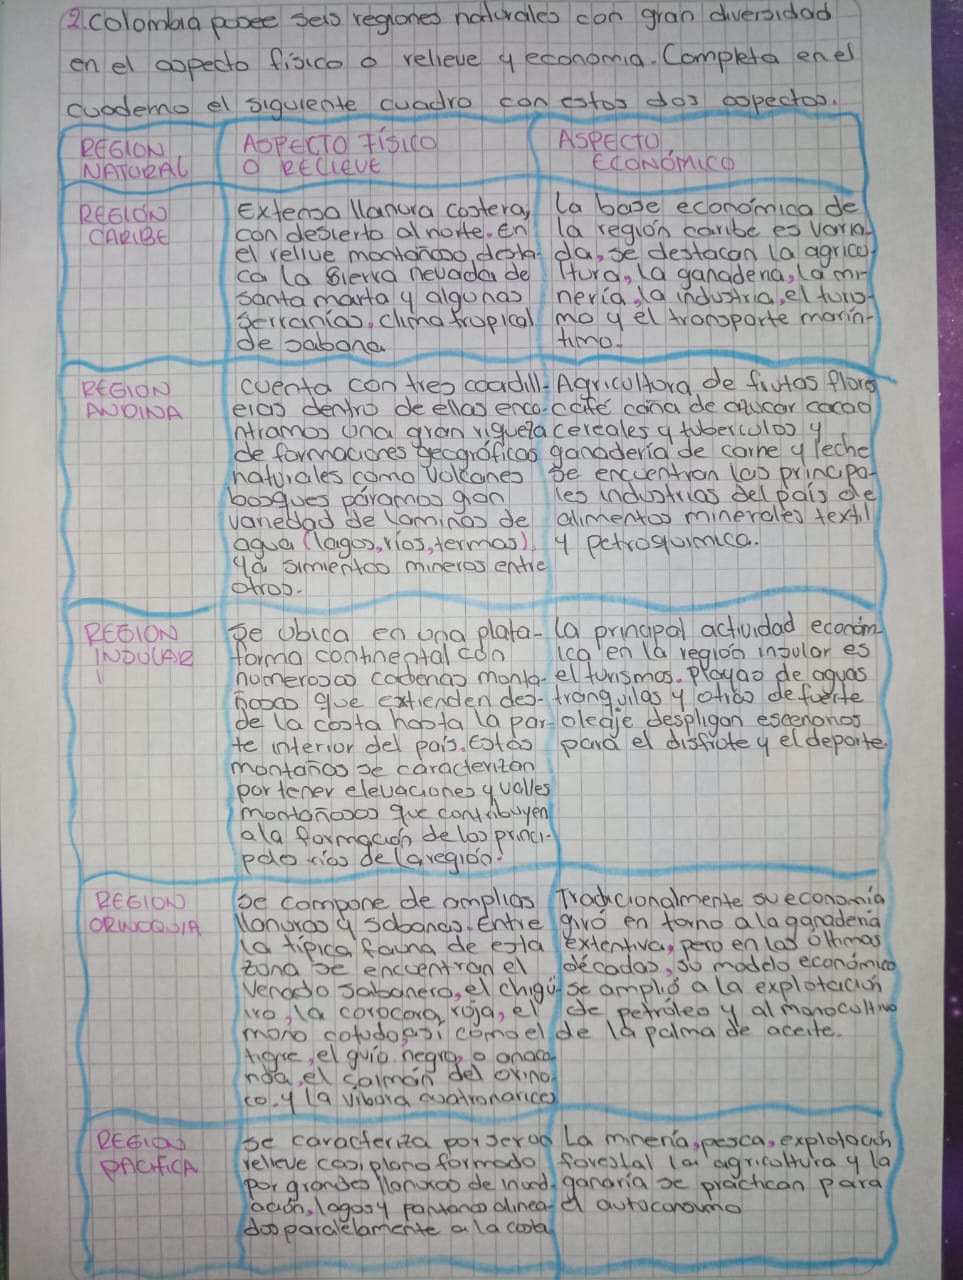 2. Colombia posee seis regiones naturales con gran diversidad
en el aspecto físico o relieve y economia. Completa en el
cuaderno el siguiente cuadro con estos dos aspectos.
REGION
NATURAL
ASPECTO FÍSICO
O RELIEVE
ASPECTO
ECONÓMICO
REGIÓN
CARIBE
Extensa llanura costera,
con desierto al norte. En
el relive montañoso, desta-
ca la Sierra nevada de
Santa marta y algunas
serranías, clima tropical
de sabana.
La base económica de
la región caribe es varia-
da, se destacan la agricu-
ltura, la ganaderia, la mi-
nería, la industria, el turis-
mo y el transporte marin-
timo.
REGION
ANDINA
cuenta con tres coadill-
eras dentro de ellas enco-
ntramos una gran riqueza
de formaciones geográficas
naturales como volcanes
bosques páramos gran
variedad de laminas de
agua (lagos, ríos, termas),
ya simientos mineros entre
otros.
Agricultura de frutas flores
café caña de azucar cacao
cereales y tuberculos y
ganadería de carne y leche
Se encuentran las principa-
les industrias del país de
alimentos minerales textil
y petroquimica.
REGION
INSULAR
Se ubica en una plata-
forma continental con
numerosas cadenas monta-
ñosas que extienden des-
de la costa hasta la par-
te interior del país. Estas
montañas se caracterizan
por tener elevaciones y valles
montañosos que contribuyen
a la formación de los princi-
pales ríos de la región.
La principal actividad económ
ica en la región insular es
el turismos. Playas de aguas
tranquilas y otras de fuerte
oleaje despligan escenarios
para el disfrute y el deporte
REGION
ORINOQUIA
Se compone de amplias
llanuras y sabanas. Entre
la típica fauna de esta
zona se encuentran el
Venado sabanero, el chigüi
iro, la corocora roja, el
mono cotudo, así como el
tigre, el guío negro o anaco
nda, el caimán del orino
co y la víbora cuatronarices
Tradicionalmente su economía
giró en torno a la ganaderia
extentiva, pero en las últimas
décadas, su modelo económico
se amplió a la explotación
de petróleo y al monocultivo
de la palma de aceite.
REGION
PACIFICA
Se caracteriza por ser un
relieve casi plano formado
por grandes llanuras de inund-
ación, lagos y pantanos alinea-
dos paralelamente a la costa
La minería, pesca, explotación
forestal la agricultura y la
ganaría se practican para
el autoconsumo